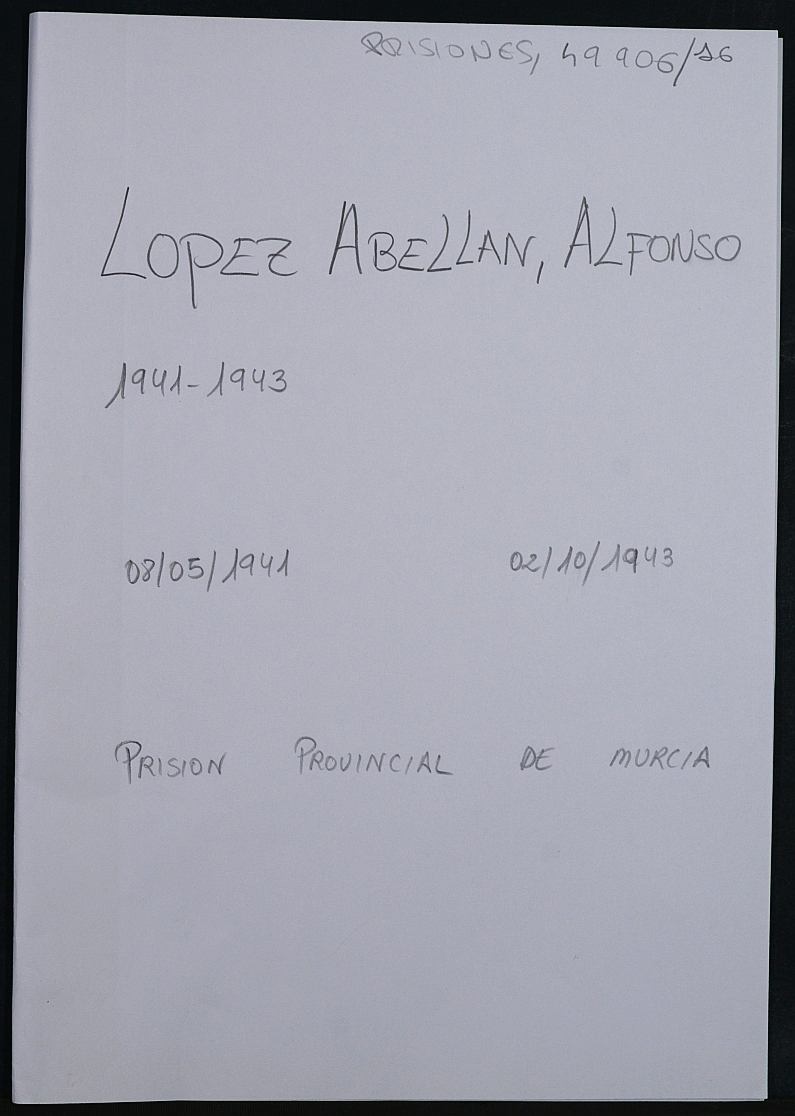 PRISIONES, 49906/16
LOPEZ ABELLAN, ALFONSO
1941-1943
08/05/1941 02/10/1943
PRISION PROVINCIAL DE MURCIA